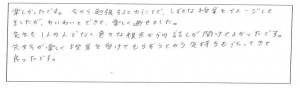 楽しかったです。今から勉強するとかいうことで、しずかな授業をイメージして
ましたが、わいわいとできて、楽しく過せました。
先生も1人の人でなく色々な視点からの話しが聞けてよかったです。
先生方が楽しく授業を受けてもらおうという気持ちもうたってきて
良かったです。